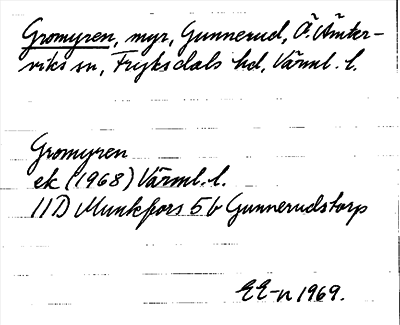 Gromyren, myr, Gunnerud, Ö. Ämter-
viks sn, Fryksdals hd, Värml. l.
Gromyren
ek (1968) Värml. l.
11D Munkfors 5b Gunnerudstorp
EE-n 1969.